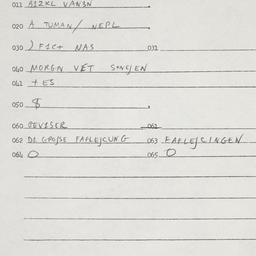 011 A12KL VAN3N
020 A TUMAN/ NEPL
030 ) F1C+ NAS 031
040 MORGN VET SONEJEN
041 + ES
050 $
060 BEVISER 061
062 D1 GROJSE FAFLEJCUNG 063 FAFLEJCINGEN
064 O 065 O